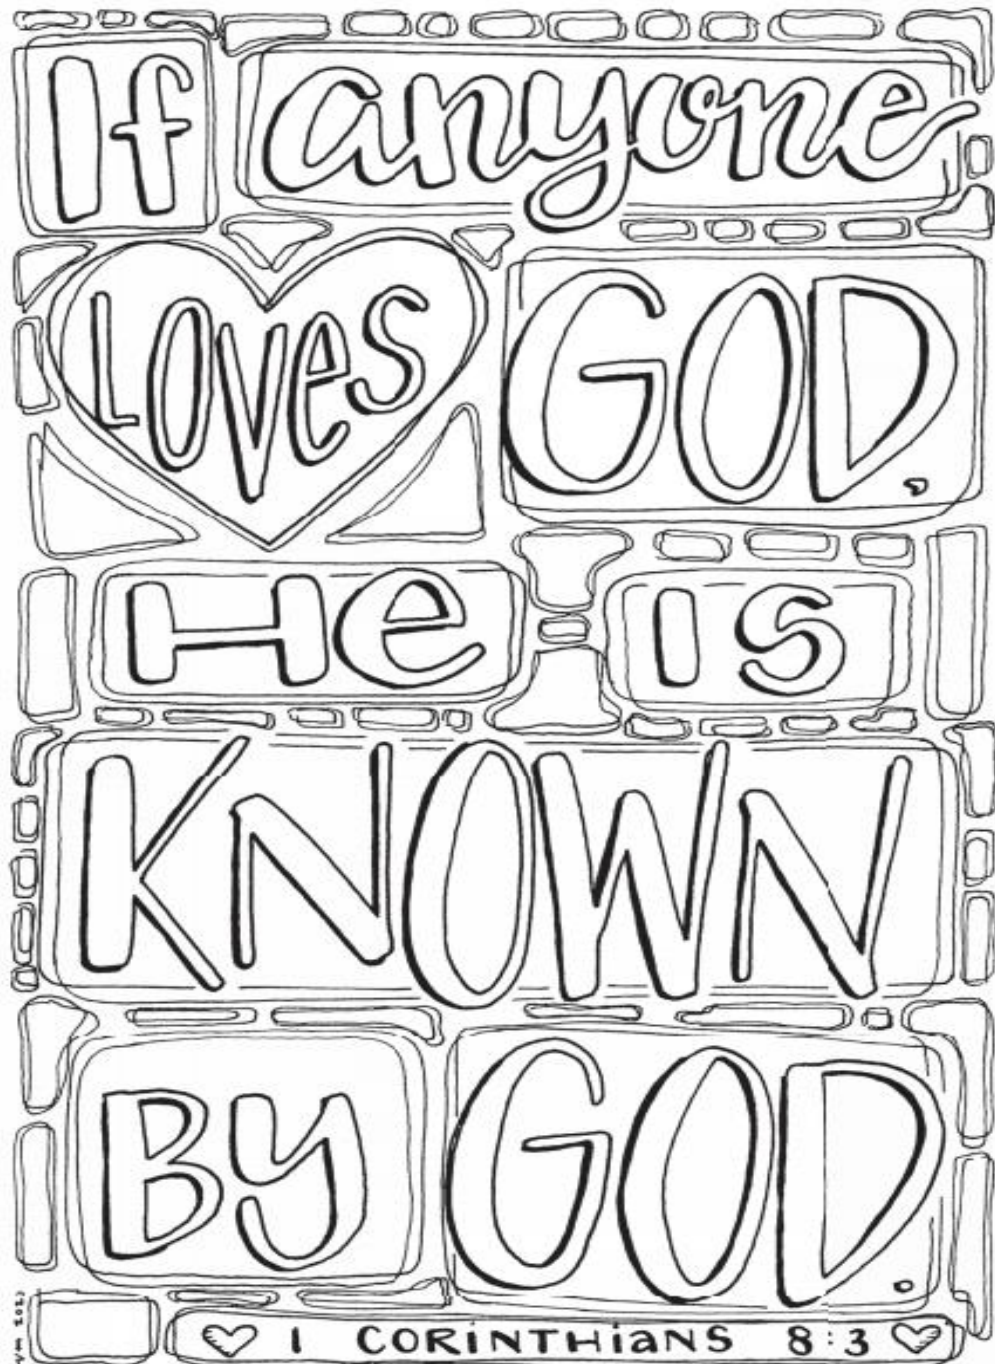 If anyone
LOVes GOD,
He IS
KNOWN
BY GOD.
1 CORiNTHiaNS 8:3